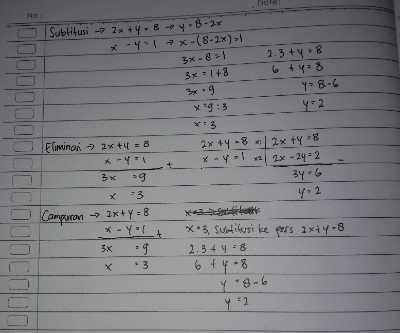 No.:
Date:
Subtitusi → 2x+y=8 → y=8-2x
x-y=1 → x-(8-2x)=1
3x-8=1 2.3+y=8
3x=1+8 6+y=8
3x=9 y=8-6
x=9:3 y=2
x=3
Eliminasi → 2x+y=8 2x+y=8 x1 | 2x+y=8
x-y=1 + x-y=1 x2 | 2x-2y=2 -
3x =9 3y=6
x =3 y=2
Campuran → 2x+y=8
x-y=1 + x=3, Substitusi ke pers 2x+y=8
3x =9 2.3+y=8
x =3 6+y=8
y=8-6
y=2